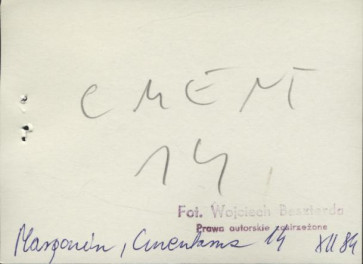 CMENT
14
Fot. Wojciech Beszterda
Prawa autorskie zastrzeżone
Margonin, Cmentarna 14 XII 84